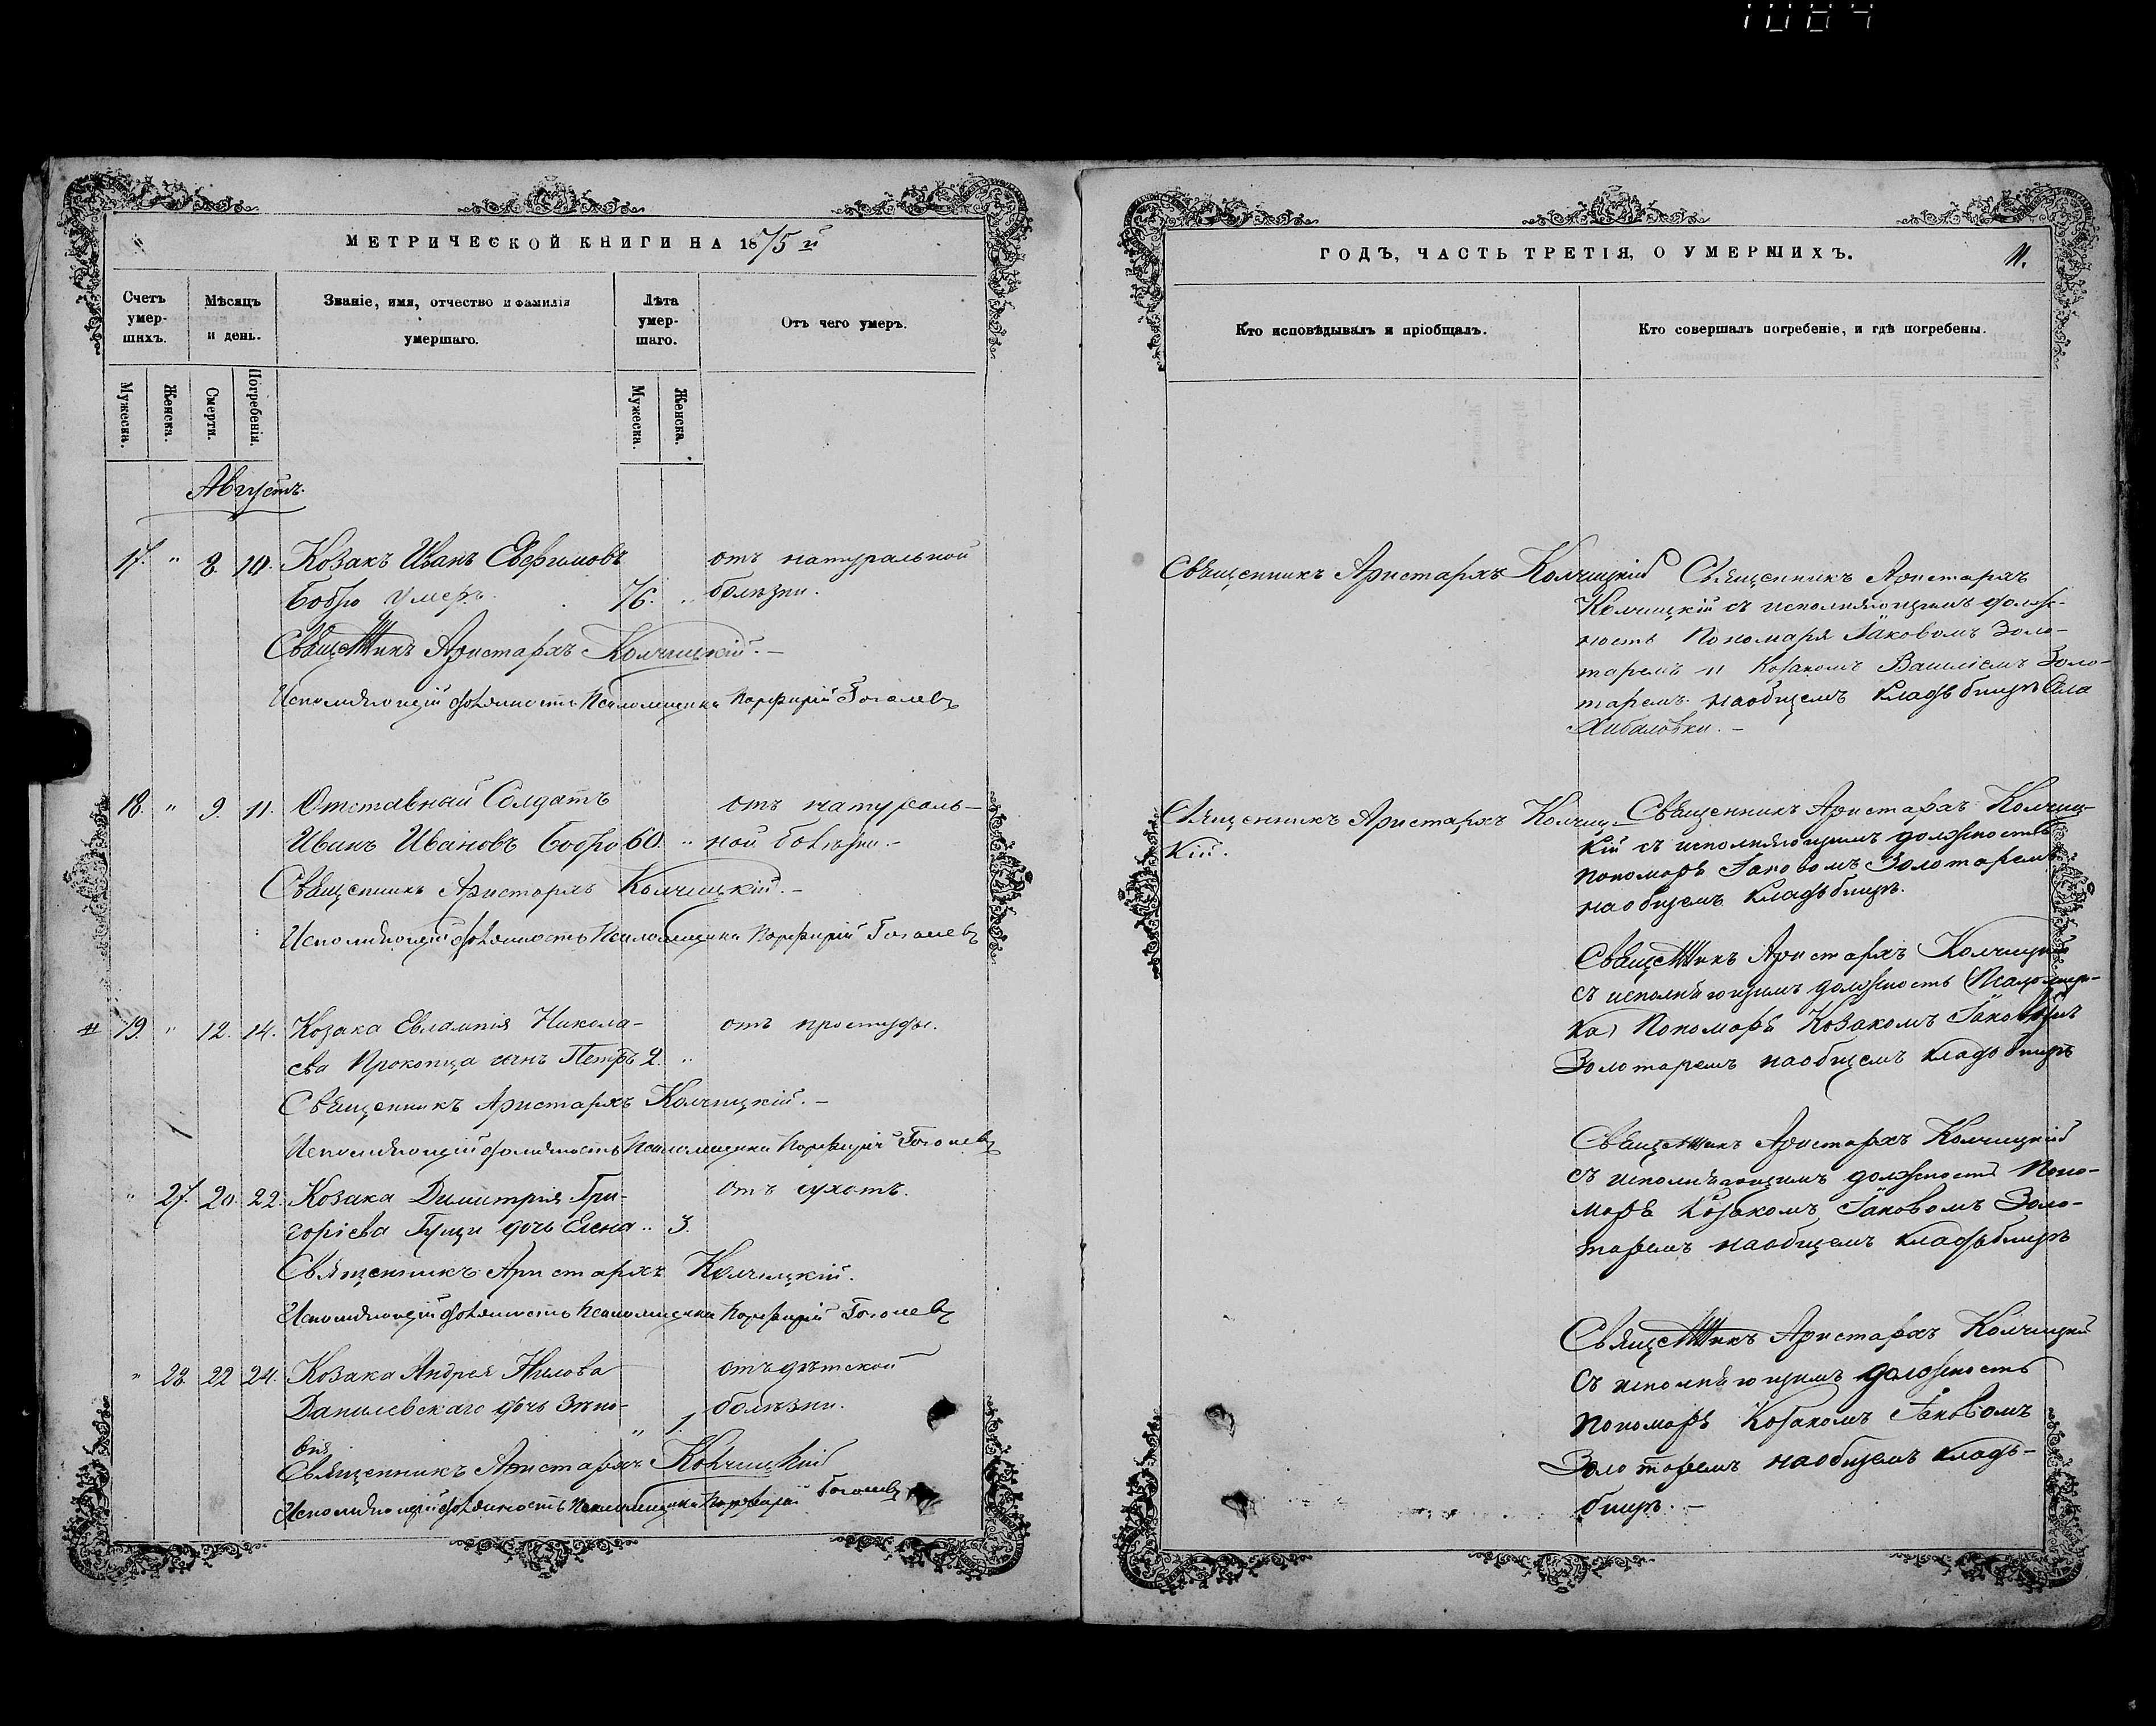 1084
МЕТРИЧЕСКОЙ КНИГИ НА 1875 й
Счетъ умер-шихъ.
Мѣсяцъ и день.
Званіе, имя, отчество и фамилія умершаго.
Лѣта умер-шаго.
Отъ чего умеръ.
Мужеска.
Женска.
Смерти.
Погребенія.
Мужеска.
Женска.
Августъ.
17. " 8. 10. Козакъ Иванъ Евфимовъ отъ натуральной
Бобро умеръ. 76. " болѣзни.
Священникъ Аристархъ Колчицкій. –
Исполняющій должность Псаломщика Порфирій Гоголевъ
18. " 9. 11. Отставнай Солдатъ отъ натураль-
Иванъ Ивановъ Бобро 60. " ной болѣзни. –
Священникъ Аристархъ Колчицкій. –
Исполняющій должность Псаломщика Порфирій Гоголевъ
19. " 12. 14. Козака Евлампія Никола- отъ простуды.
ева Прокопца сынъ Петръ 2. "
Священникъ Аристархъ Колчицкій. –
Исполняющій должность Псаломщика Порфирій Гоголевъ
" 27. 20. 22. Козака Димитрія Гри- отъ сухотъ.
горіева Гущи дочь Елена " 3.
Священникъ Аристархъ Колчицкій.
Исполняющій должность Псаломщика Порфирій Гоголевъ
" 28. 22 24. Козака Андрея Нилова отъ дѣтской
Данилевскаго дочь Зѣно- болѣзни.
вія " 1.
Священникъ Аристархъ Колчицкій
Исполняющій должность Псаломщика Порфирій Гоголевъ
ГОДЪ, ЧАСТЬ ТРЕТІЯ, О УМЕРШИХЪ.
11.
Кто исповѣдывалъ и пріобщалъ.
Кто совершалъ погребеніе, и гдѣ погребены.
Священникъ Аристархъ Колчицкій
Священникъ Аристархъ
Колчицкій съ исполняющимъ долж-
ность Пономаря Іаковомъ Золо-
таремъ и Козакомъ Василіемъ Золо-
таремъ наобщемъ кладьбищѣ Села
Хибаловки. –
Священникъ Аристархъ Колчиц-
кій.
Священникъ Аристархъ Колчиц-
кій съ исполняющимъ должность
пономарѣ Іаковомъ Золотаремъ
наобщемъ кладьбищѣ.
Священникъ Аристархъ Колчицкій
съ исполняющимъ должность
ка) Пономарѣ Козакомъ Іаковомъ
Золотаремъ наобщемъ кладьбищѣ
Священникъ Аристархъ Колчицкій
съ исполняющимъ должность Поно-
марѣ Козакомъ Іаковомъ Золо-
таремъ наобщемъ кладьбищѣ
Священникъ Аристархъ Колчицкій
съ исполняющимъ должность
пономарѣ Козакомъ Іаковомъ
Золотаремъ наобщемъ кладь-
бищѣ. –